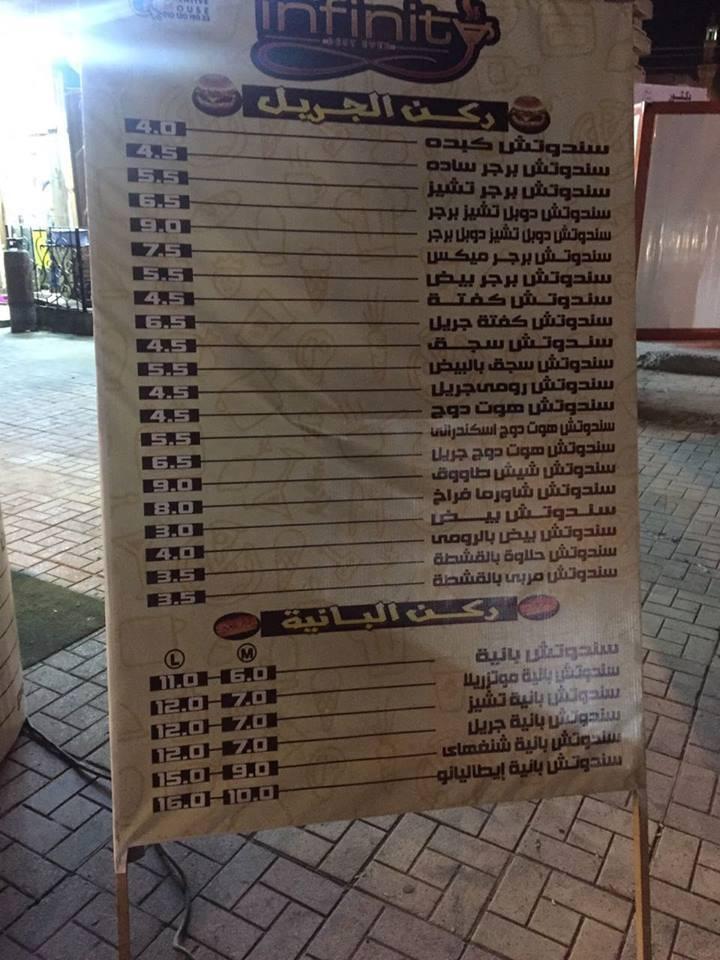 infinity
ركن الجريل
سندوتش كبده 4.0
سندوتش برجر ساده 4.5
سندوتش برجر تشيز 5.5
سندوتش دوبل تشيز برجر 6.5
سندوتش دوبل تشيز دوبل برجر 9.0
سندوتش برجر ميكس 7.5
سندوتش برجر بيض 5.5
سندوتش كفتة 4.5
سندوتش كفتة جريل 6.5
سندوتش سجق 4.5
سندوتش سجق بالبيض 5.5
سندوتش رومى جريل 4.5
سندوتش هوت دوج 4.5
سندوتش هوت دوج اسكندرانى 5.5
سندوتش هوت دوج جريل 6.5
سندوتش شيش طاووق 9.0
سندوتش شاورما فراخ 8.0
سندوتش بيض 3.0
سندوتش بيض بالرومى 4.0
سندوتش حلاوة بالقشطة 3.5
سندوتش مربى بالقشطة 3.5
ركن البانية
M L
سندوتش بانية 6.0 11.0
سندوتش بانية موتزريلا 7.0 12.0
سندوتش بانية تشيز 7.0 12.0
سندوتش بانية جريل 7.0 12.0
سندوتش بانية شنغهاى 9.0 15.0
سندوتش بانية إيطاليانو 10.0 16.0